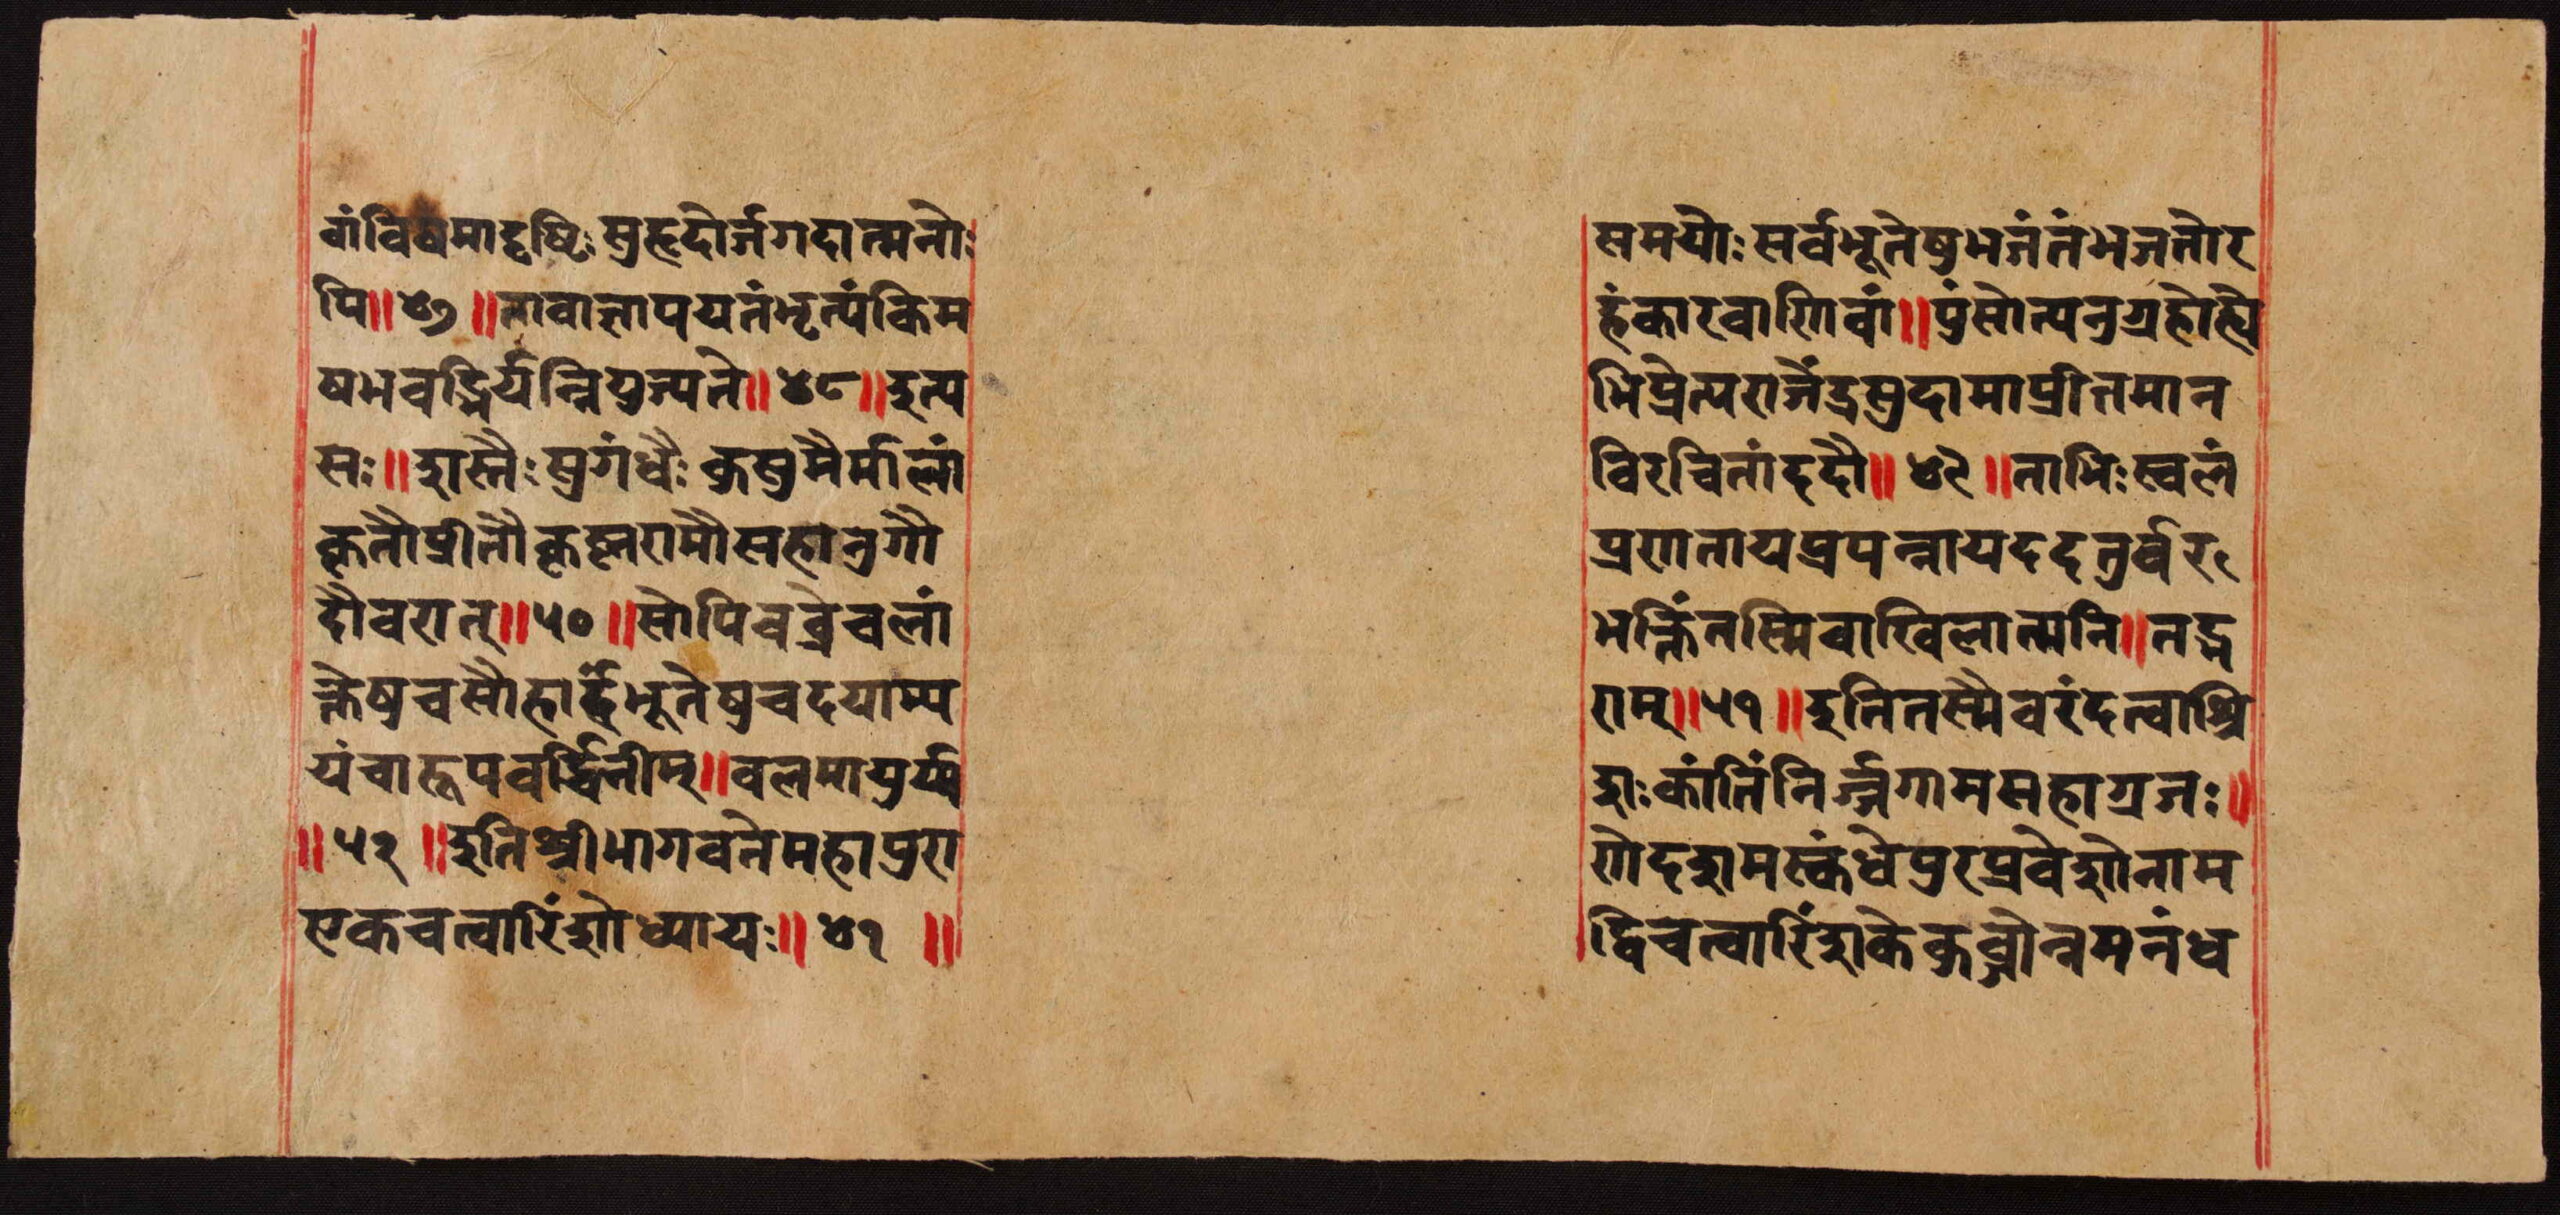 वांविषमादृष्टिःसुहृदोर्जगदात्मनोः समयोःसर्वभूतेषुभजंतंभजतोर
पि॥४७॥तावाज्ञापयतंभृत्यंकिम हंकारवाणिवां॥पुंसोत्यनुग्रहोह्ये
षभवद्भिर्यन्नियुज्यते॥४८॥इत्य भिप्रेत्यराजेंद्रसुदामाप्रीतमान
सः॥शस्तैःसुगंधैःकुसुमैर्मालां विरचितांददौ॥४९॥ताभिःस्वलं
कृतौप्रीतौकृष्णरामौसहानुगौ प्रणतायप्रपन्नायददतुर्वर
दौवरान्॥५०॥सोपिवव्रेचलां भक्तिंतस्मिवाखिलात्मनि॥तद्भ
क्तेषुचसौहार्द्दंभूतेषुचदयाम्प राम्॥५१॥इतितस्मैवरंदत्वाश्रि
यंचान्वयवर्द्धिनीम्॥वलमायुर्य्य शःकांतिंनिर्ज्जगामसहाग्रजः॥
॥५२॥इतिश्रीभागवतेमहापुरा णेदशमस्कंधेपुरप्रवेशोनाम
एकचत्वारिंशोध्यायः॥४१॥ द्विचत्वारिंशकेकुब्जोन्नमनंध